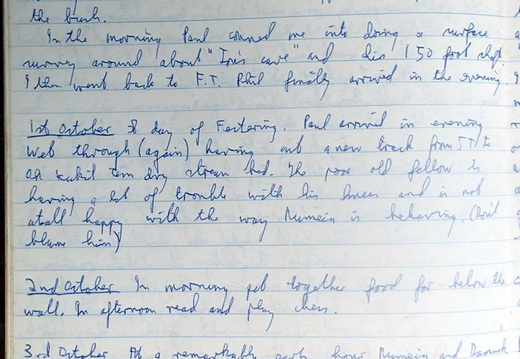 the bush.
In the morning Paul conned me into doing a surface
survey around about "Iris cave" and his 150 foot shaft
I then went back to F.T. Phil finally arrived in the evening.
1st October A day of Festering. Paul arrived in evening
Web through (again) having cut a new track from FT to
Ok Kubil Tem dry stream bed. The poor old fellow is
having a lot of trouble with his knees and is not
atall happy with the way Numein is behaving. (Don't
blame him)
2nd October In morning put together food for below the
wall. In afternoon read and play chess.
3rd October At a remarkably early hour Numein and